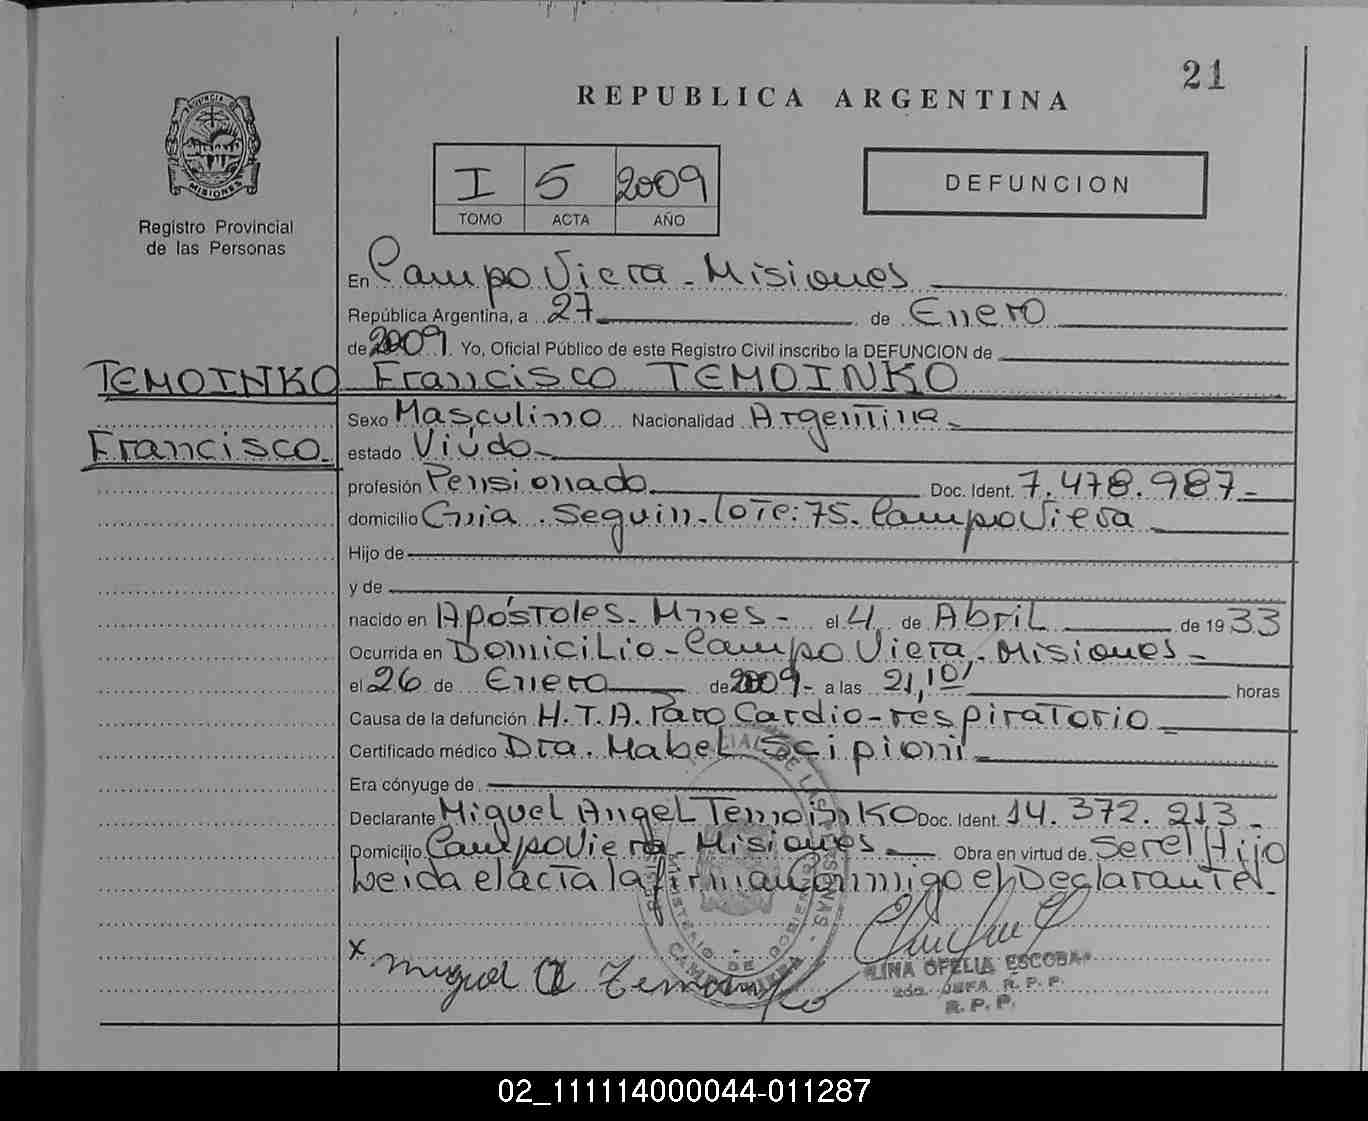 21
REPUBLICA ARGENTINA
PROVINCIA DE
MISIONES
Registro Provincial
de las Personas
I 5 2009
TOMO ACTA AÑO
DEFUNCION
En Campo Viera - Misiones
República Argentina, a 27 de Enero
de 2009. Yo, Oficial Público de este Registro Civil inscribo la DEFUNCION de
TEMOINKO Francisco TEMOINKO
Sexo Masculino Nacionalidad Argentina
Francisco. estado Viúdo
profesión Pensionado Doc. Ident. 7.478.987-
domicilio Guia. Seguin. lote: 75. Campo Viera
Hijo de
y de
nacido en Apóstoles. Mnes - el 4 de Abril de 1933
Ocurrida en Domicilio - Campo Viera. Misiones -
el 26 de Enero de 2009- a las 21,10' horas
Causa de la defunción H.T.A. Paro Cardio-respiratorio
Certificado médico Dra. Mabel Scipioni
Era cónyuge de
Declarante Miguel Angel Temoinko Doc. Ident. 14.372.213-
Domicilio Campo Viera - Misiones Obra en virtud de Ser el Hijo
Leida el acta la firman Conmigo el Declarante-
x Miguel A Temoinko
LINA OFELIA ESCOBAR
2da. JEFA R. P. P.
R. P. P.
02_111114000044-011287